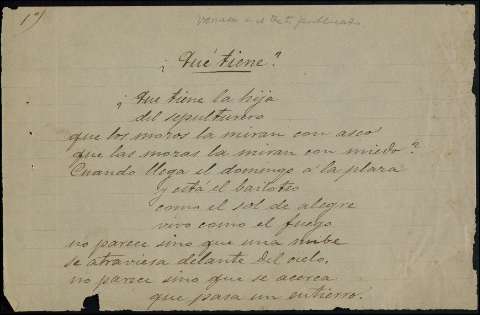 1º)
¿Qué tiene?
¿Que tiene la hija
del sepulturero
que los mozos la miran con asco
que las mozas la miran con miedo?
Cuando llega el domingo á la plaza
y está el bailoteo
como el sol de alegre
vivo como el fuego
no parece sino que una nube
se atraviesa delante del cielo,
no parece sino que se acerca
que pasa un entierro.